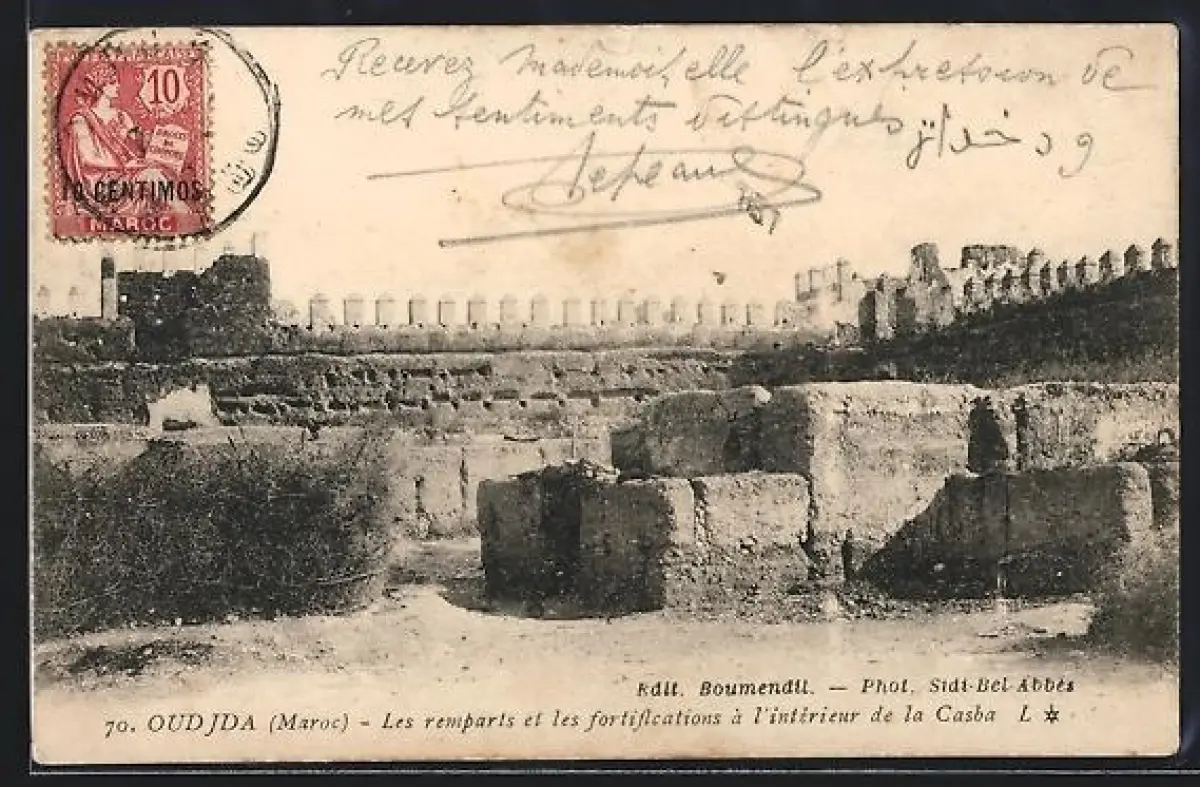 10
10 CENTIMOS
MAROC
Recevez Mademoiselle l'expression de
mes sentiments distingués
Edit. Boumendil. — Phot. Sidi-Bel-Abbès
70. OUDJDA (Maroc) - Les remparts et les fortifications à l'intérieur de la Casba L ✡